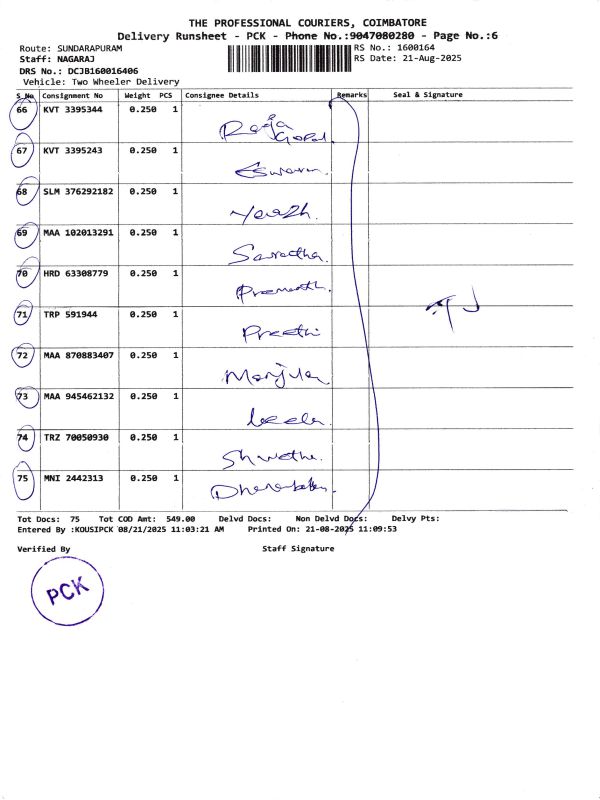 THE PROFESSIONAL COURIERS, COIMBATORE
Delivery Runsheet - PCK - Phone No.:9047080280 - Page No.:6
Route: SUNDARAPURAM
RS No.: 1600164
Staff: NAGARAJ
RS Date: 21-Aug-2025
DRS No.: DCJB160016406
Vehicle: Two Wheeler Delivery
S_No Consignment No Weight PCS Consignee Details Remarks Seal & Signature
66 KVT 3395344 0.250 1
Raja
Gopal.
67 KVT 3395243 0.250 1
Eswaran.
68 SLM 376292182 0.250 1
69 MAA 102013291 0.250 1
70 HRD 63308779 0.250 1
71 TRP 591944 0.250 1
Preethi
72 MAA 870883407 0.250 1
Manjula
73 MAA 945462132 0.250 1
Leela.
74 TRZ 70050930 0.250 1
Shwetha.
75 MNI 2442313 0.250 1
Tot Docs: 75 Tot COD Amt: 549.00 Delvd Docs: Non Delvd Docs: Delvy Pts:
Entered By :KOUSIPCK 08/21/2025 11:03:21 AM Printed On: 21-08-2025 11:09:53
Verified By Staff Signature
PCK